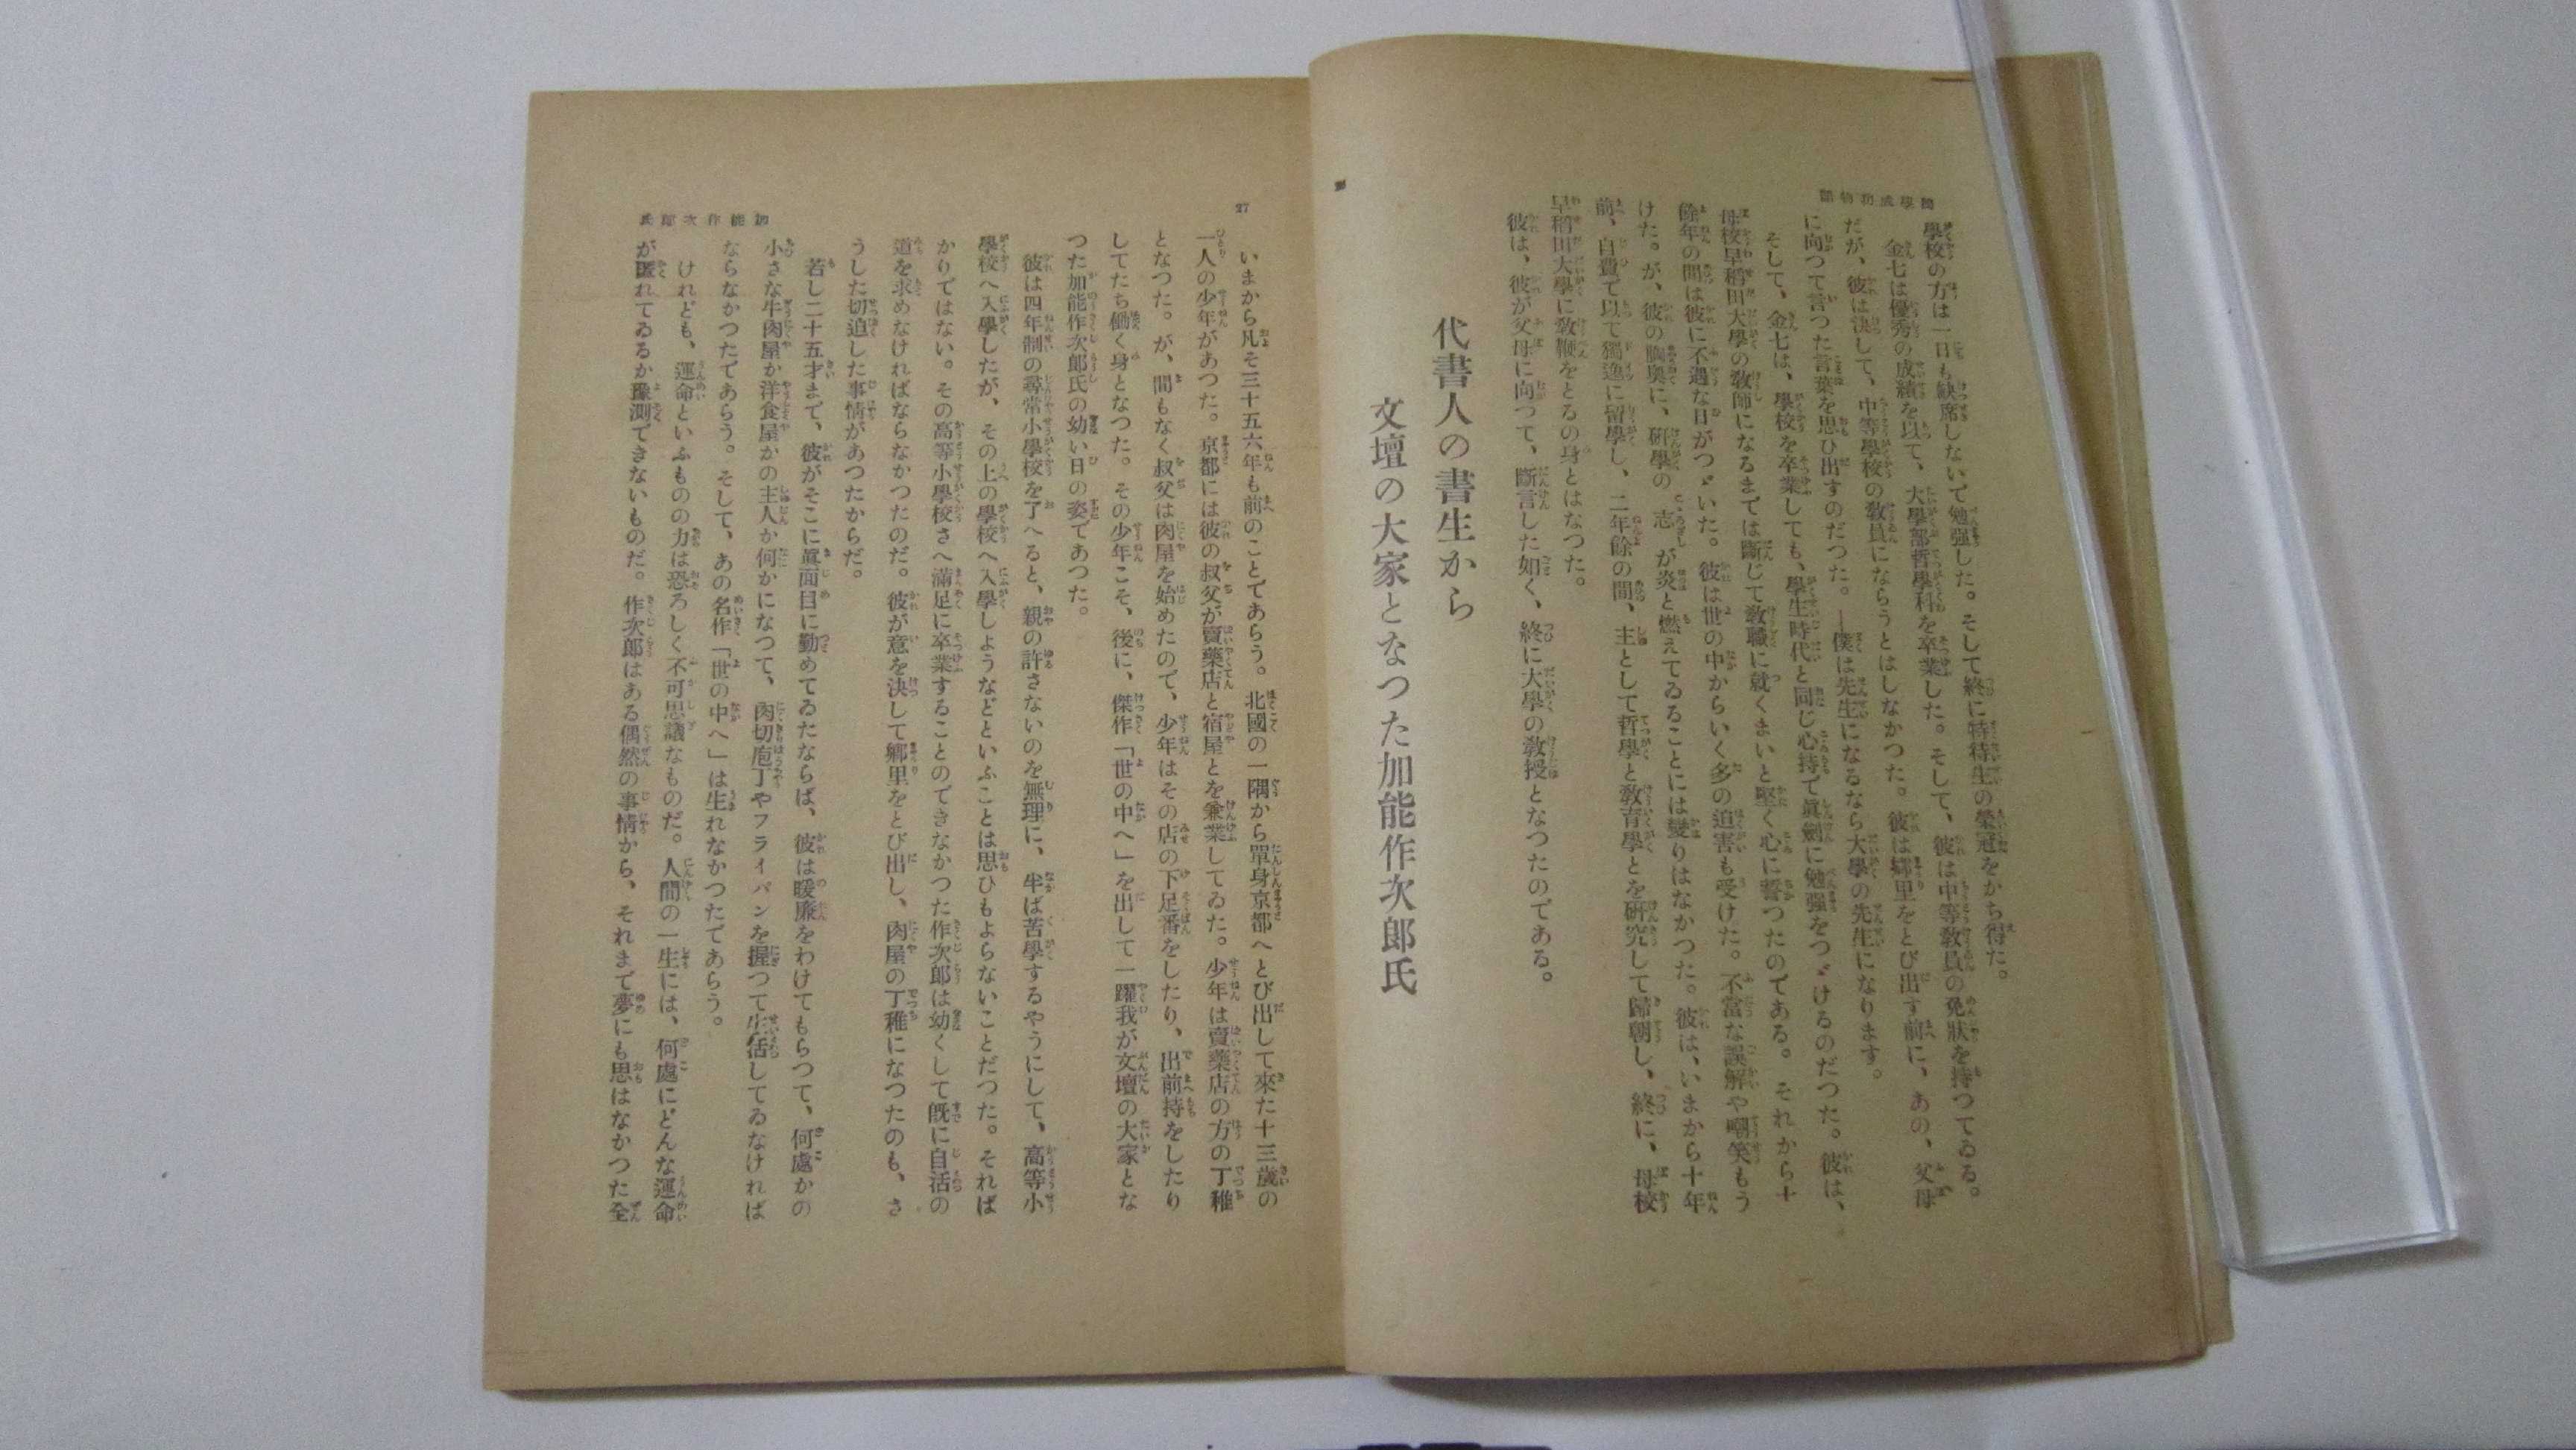 苦學成功物語
學校の方は一日も缺席しないで勉强した。そして終に特待生の榮冠をかち得た。
金七は優秀の成績を以て、大學部哲學科を卒業した。そして、彼は中等教員の免狀を持つてゐる。
だが、彼は決して、中等學校の敎員にならうとはしなかつた。彼は鄕里をとび出す前に、あの、父母
に向つて言つた言葉を思ひ出すのだつた。―僕は先生になるなら大學の先生になります。
そして、金七は、學校を卒業しても、學生時代と同じ心持で眞劍に勉强をつゞけるのだつた。彼は、
母校早稻田大學の敎師になるまでは斷じて敎職に就くまいと堅く心に誓つたのである。それから十
餘年の間は彼に不遇な日がつゞいた。彼は世の中からいく多の迫害も受けた。不當な誤解や嘲笑もう
けた。が、彼の胸奥に、硏學の志が炎と燃えてゐることには變りはなかつた。彼は、いまから十年
前、自費で以て獨逸に留學し、二年餘の間、主として哲學と敎育學とを硏究して歸朝し、終に、母校
早稻田大學に敎鞭をとるの身とはなつた。
彼は、彼が父母に向つて、斷言した如く、終に大學の敎授となつたのである。
代書人の書生から
文壇の大家となつた加能作次郎氏
27
いまから凡そ三十五六年も前のことであらう。北國の一隅から單身京都へとび出して來た十三歲の
一人の少年があつた。京都には彼の叔父が賣藥店と宿屋とを兼業してゐた。少年は賣藥店の方の丁稚
となつた。が、間もなく叔父は肉屋を始めたので、少年はその店の下足番をしたり、出前持をしたり
してたち働く身となつた。その少年こそ、後に、傑作「世の中へ」を出して一躍我が文壇の大家とな
つた加能作次郎氏の幼い日の姿であつた。
彼は四年制の尋常小學校を了へると、親の許さないのを無理に、半ば苦學するやうにして、高等小
學校へ入學したが、その上の學校へ入學しようなどといふことは思ひもよらないことだつた。それば
かりではない。その高等小學校さへ滿足に卒業することのできなかつた作次郎は幼くして既に自活の
道を求めなければならなかつたのだ。彼が意を決して鄕里をとび出し、肉屋の丁稚になつたのも、さ
うした切迫した事情があつたからだ。
若し二十五才まで、彼がそこに眞面目に勤めてゐたならば、彼は暖廉をわけてもらつて、何處かの
小さな牛肉屋か洋食屋かの主人か何かになつて、肉切庖丁やフライパンを握つて生活してゐなければ
ならなかつたであらう。そして、あの名作「世の中へ」は生れなかつたであらう。
けれども、運命といふものの力は恐ろしく不可思議なものだ。人間の一生には、何處にどんな運命
が匿れてゐるか豫測できないものだ。作次郎はある偶然の事情から、それまで夢にも思はなかつた全
加能作次郎氏